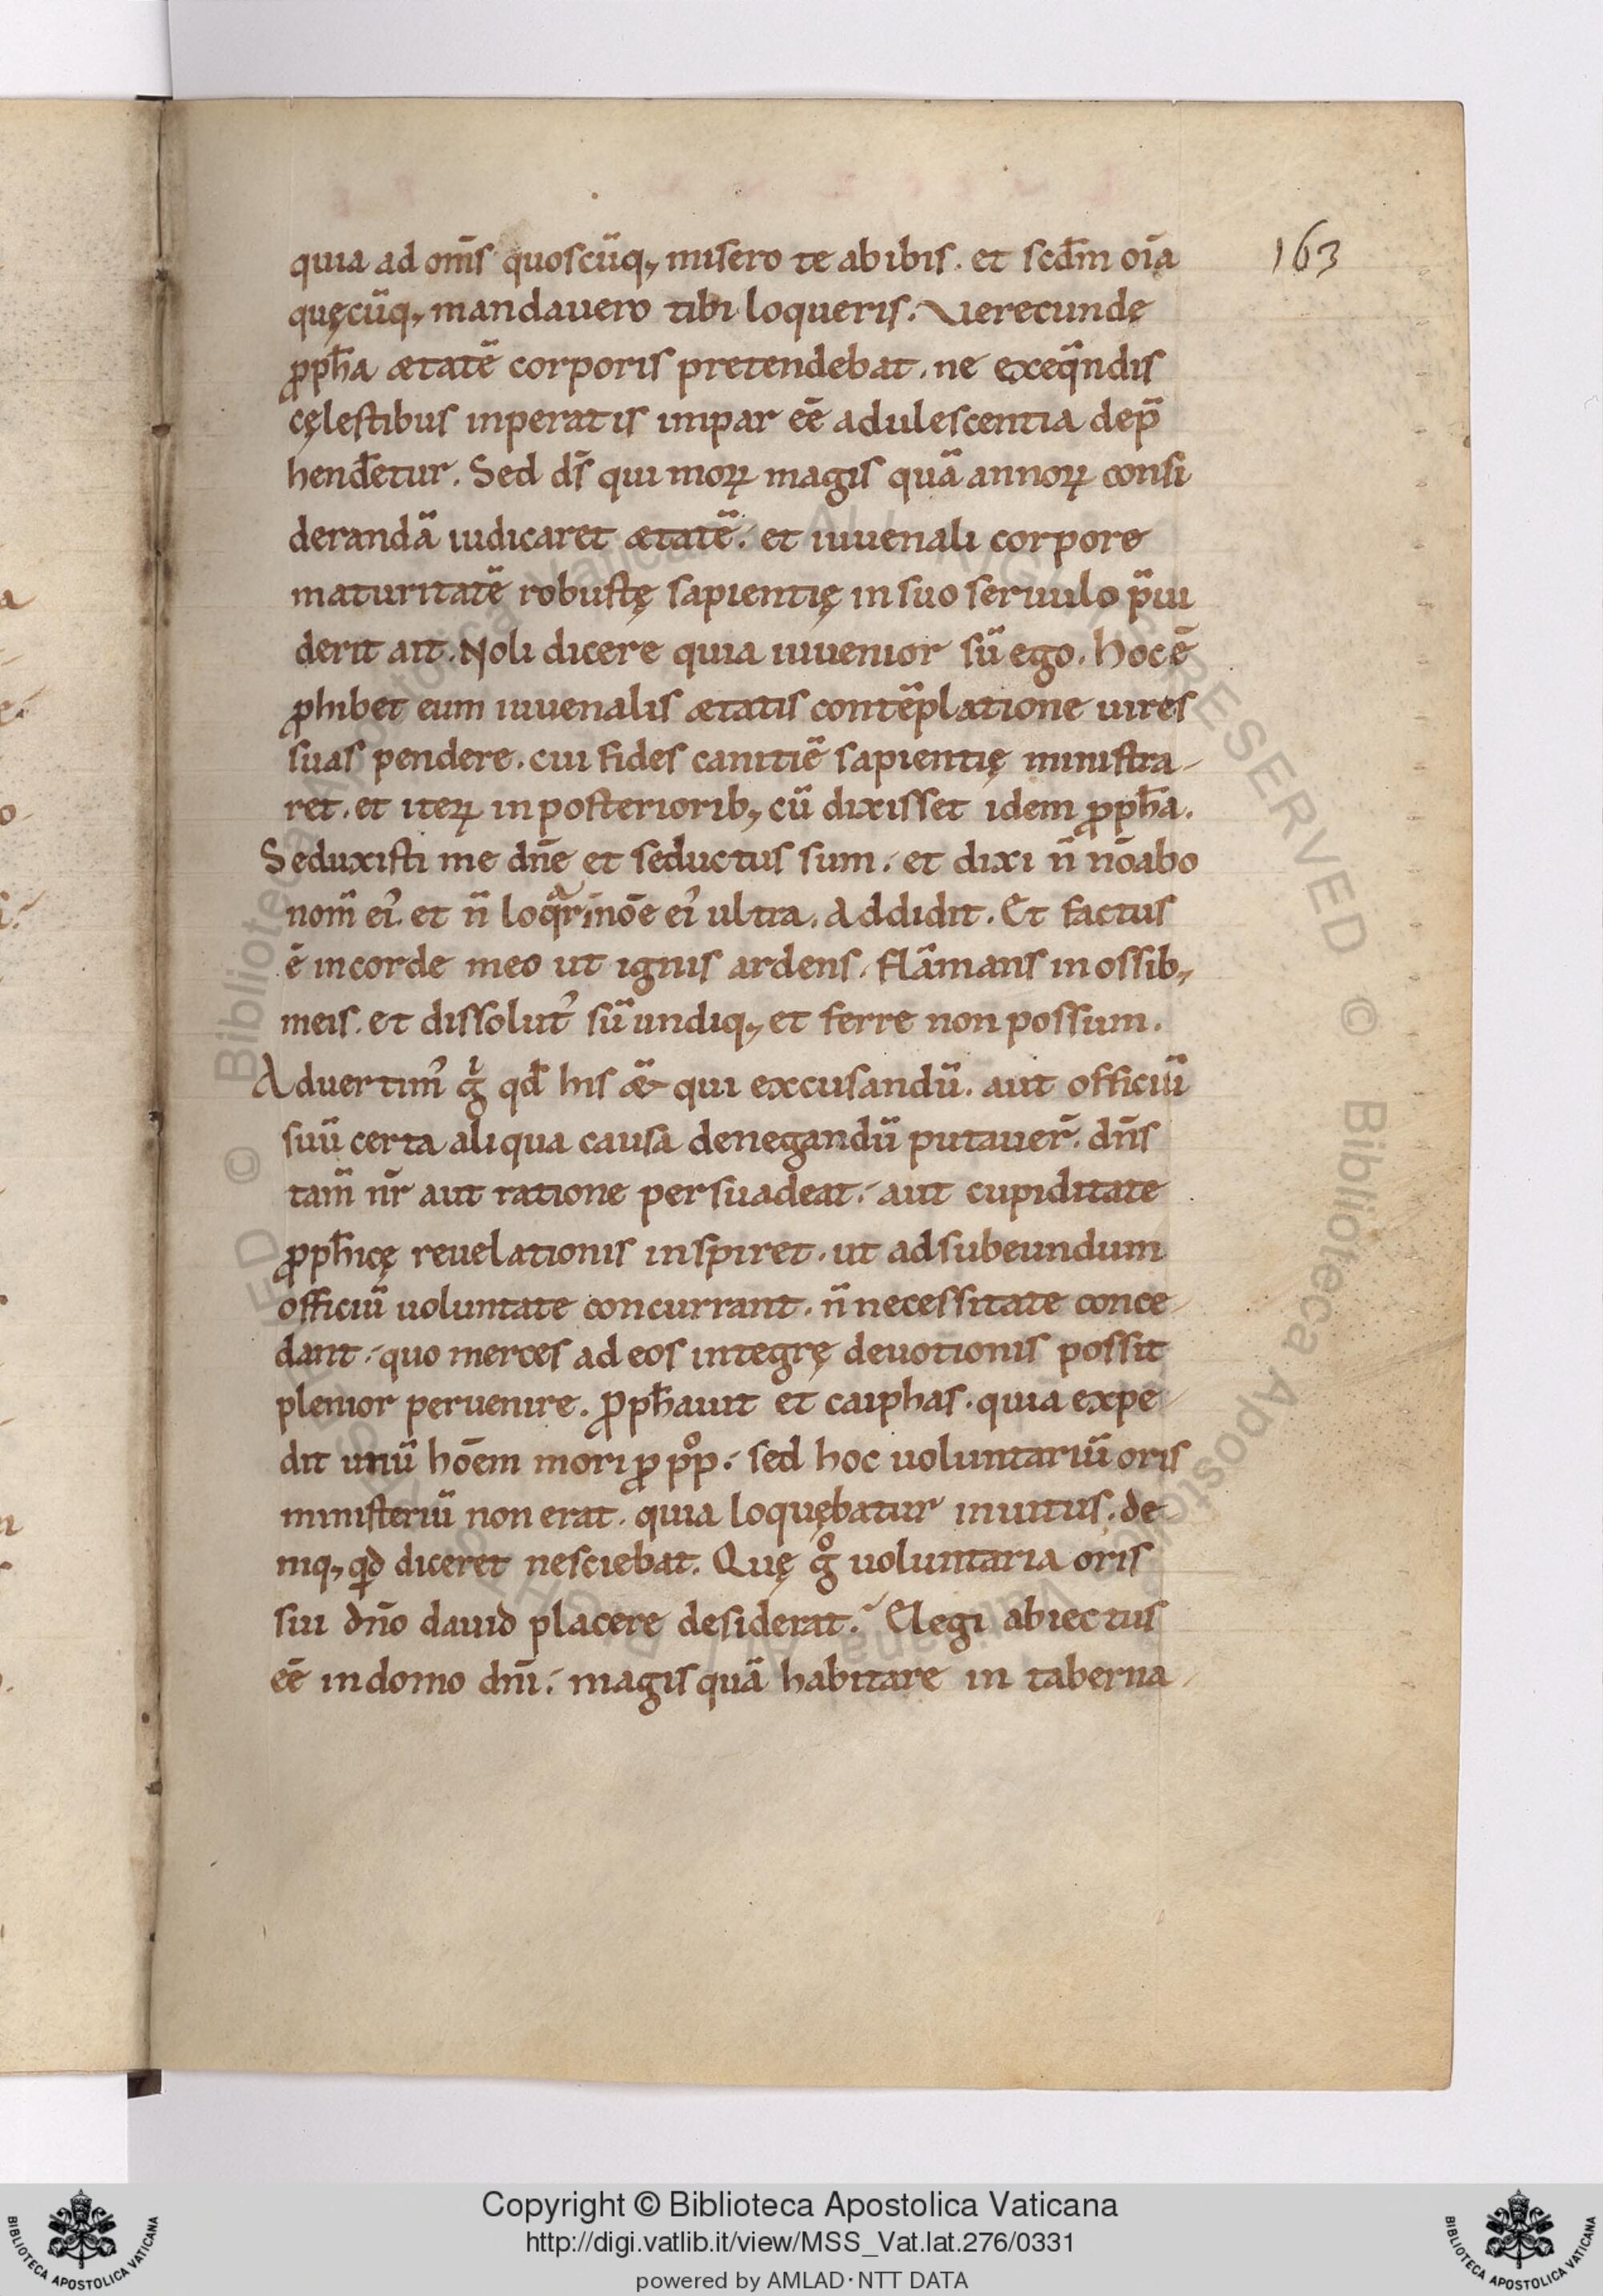 163
quia ad om̄s quoscūq, misero te abibis. et scd̄m oīa
quęcūq, mandauero tibi loqueris. Uerecunde
ꝓph̄a ætatē corporis pretendebat. ne exeq̄ndis
cęlestibus inperatis impar eē adulescentia dep̄
hend̄etur. Sed ds̄ qui moꝝ magis quā annoꝝ consi
derandā iudicaret ætatē. et iuuenali corpore
maturitatē robustę sapientię in suo seruulo p̄ui
derit ait. Noli dicere quia iuuenior sū ego. hoc ē
ꝓhibet eum iuuenalis ætatis contēplatione uires
suas pendere. cui fides canitiē sapientię ministra-
ret. et iteꝝ in posteriorib, cū dixisset idem ꝓph̄a.
Seduxisti me dn̄e et seductus sum. et dixi n̄ nōabo
nom̄ eiꝰ. et n̄ loq̄r inōe eiꝰ ultra. Addidit. Et factus
ē incorde meo ut ignis ardens. flāmans in ossib,
meis. et dissolutꝰ sū undiq, et ferre non possum.
Aduertimꝰ g̓ qd̄ his æ qui excusandū. aut officiū
suū certa aliqua causa denegandū putauer̄. dn̄s
tam̄ nr̄ aut ratione persuadeat. aut cupiditate
ꝓph̄icę reuelationis inspiret. ut ad subeundum
officiū uoluntate concurrant. n̄ necessitate conce
dant. quo merces ad eos integrę deuotionis possit
plenior peruenire. ꝓph̄auit et caiphas. quia expe
dit unū hōem mori ꝓ ppͦ. sed hoc uoluntariū oris
ministeriū non erat. quia loquębatur inuitus. de
niq, qd diceret nesciebat. Quę gͦ uoluntaria oris
sui dn̄o dauid placere desiderat. Elegi abiectus
eē in domo dn̄i. magis quā habitare in taberna-
Copyright © Biblioteca Apostolica Vaticana
http://digi.vatlib.it/view/MSS_Vat.lat.276/0331
powered by AMLAD·NTT DATA
BIBLIOTECA APOSTOLICA VATICANA
BIBLIOTECA APOSTOLICA VATICANA